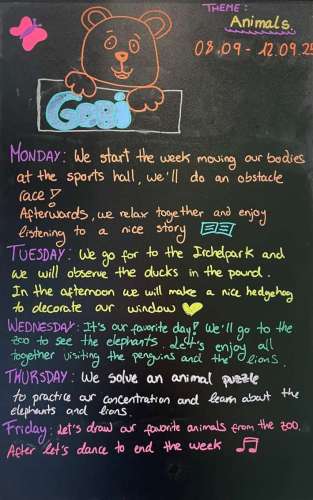 THEME:
Animals.
08.09 - 12.09.25
Gobi
MONDAY: We start the week moving our bodies
at the sports hall, we'll do an obstacle
race!
Afterwards, we relax together and enjoy
listening to a nice story
TUESDAY: We go for to the Irchelpark and
we will observe the ducks in the pound.
In the afternoon we will make a nice hedgehog
to decorate our window
WEDNESDAY: It's our favorite day! We'll go to the
zoo to see the elephants. Let's enjoy all
together visiting the penguins and the lions.
THURSDAY: We solve an animal puzzle
to practice our concentration and learn about the
elephants and lions.
Friday: Let's draw our favorite animals from the zoo.
After let's dance to end the week